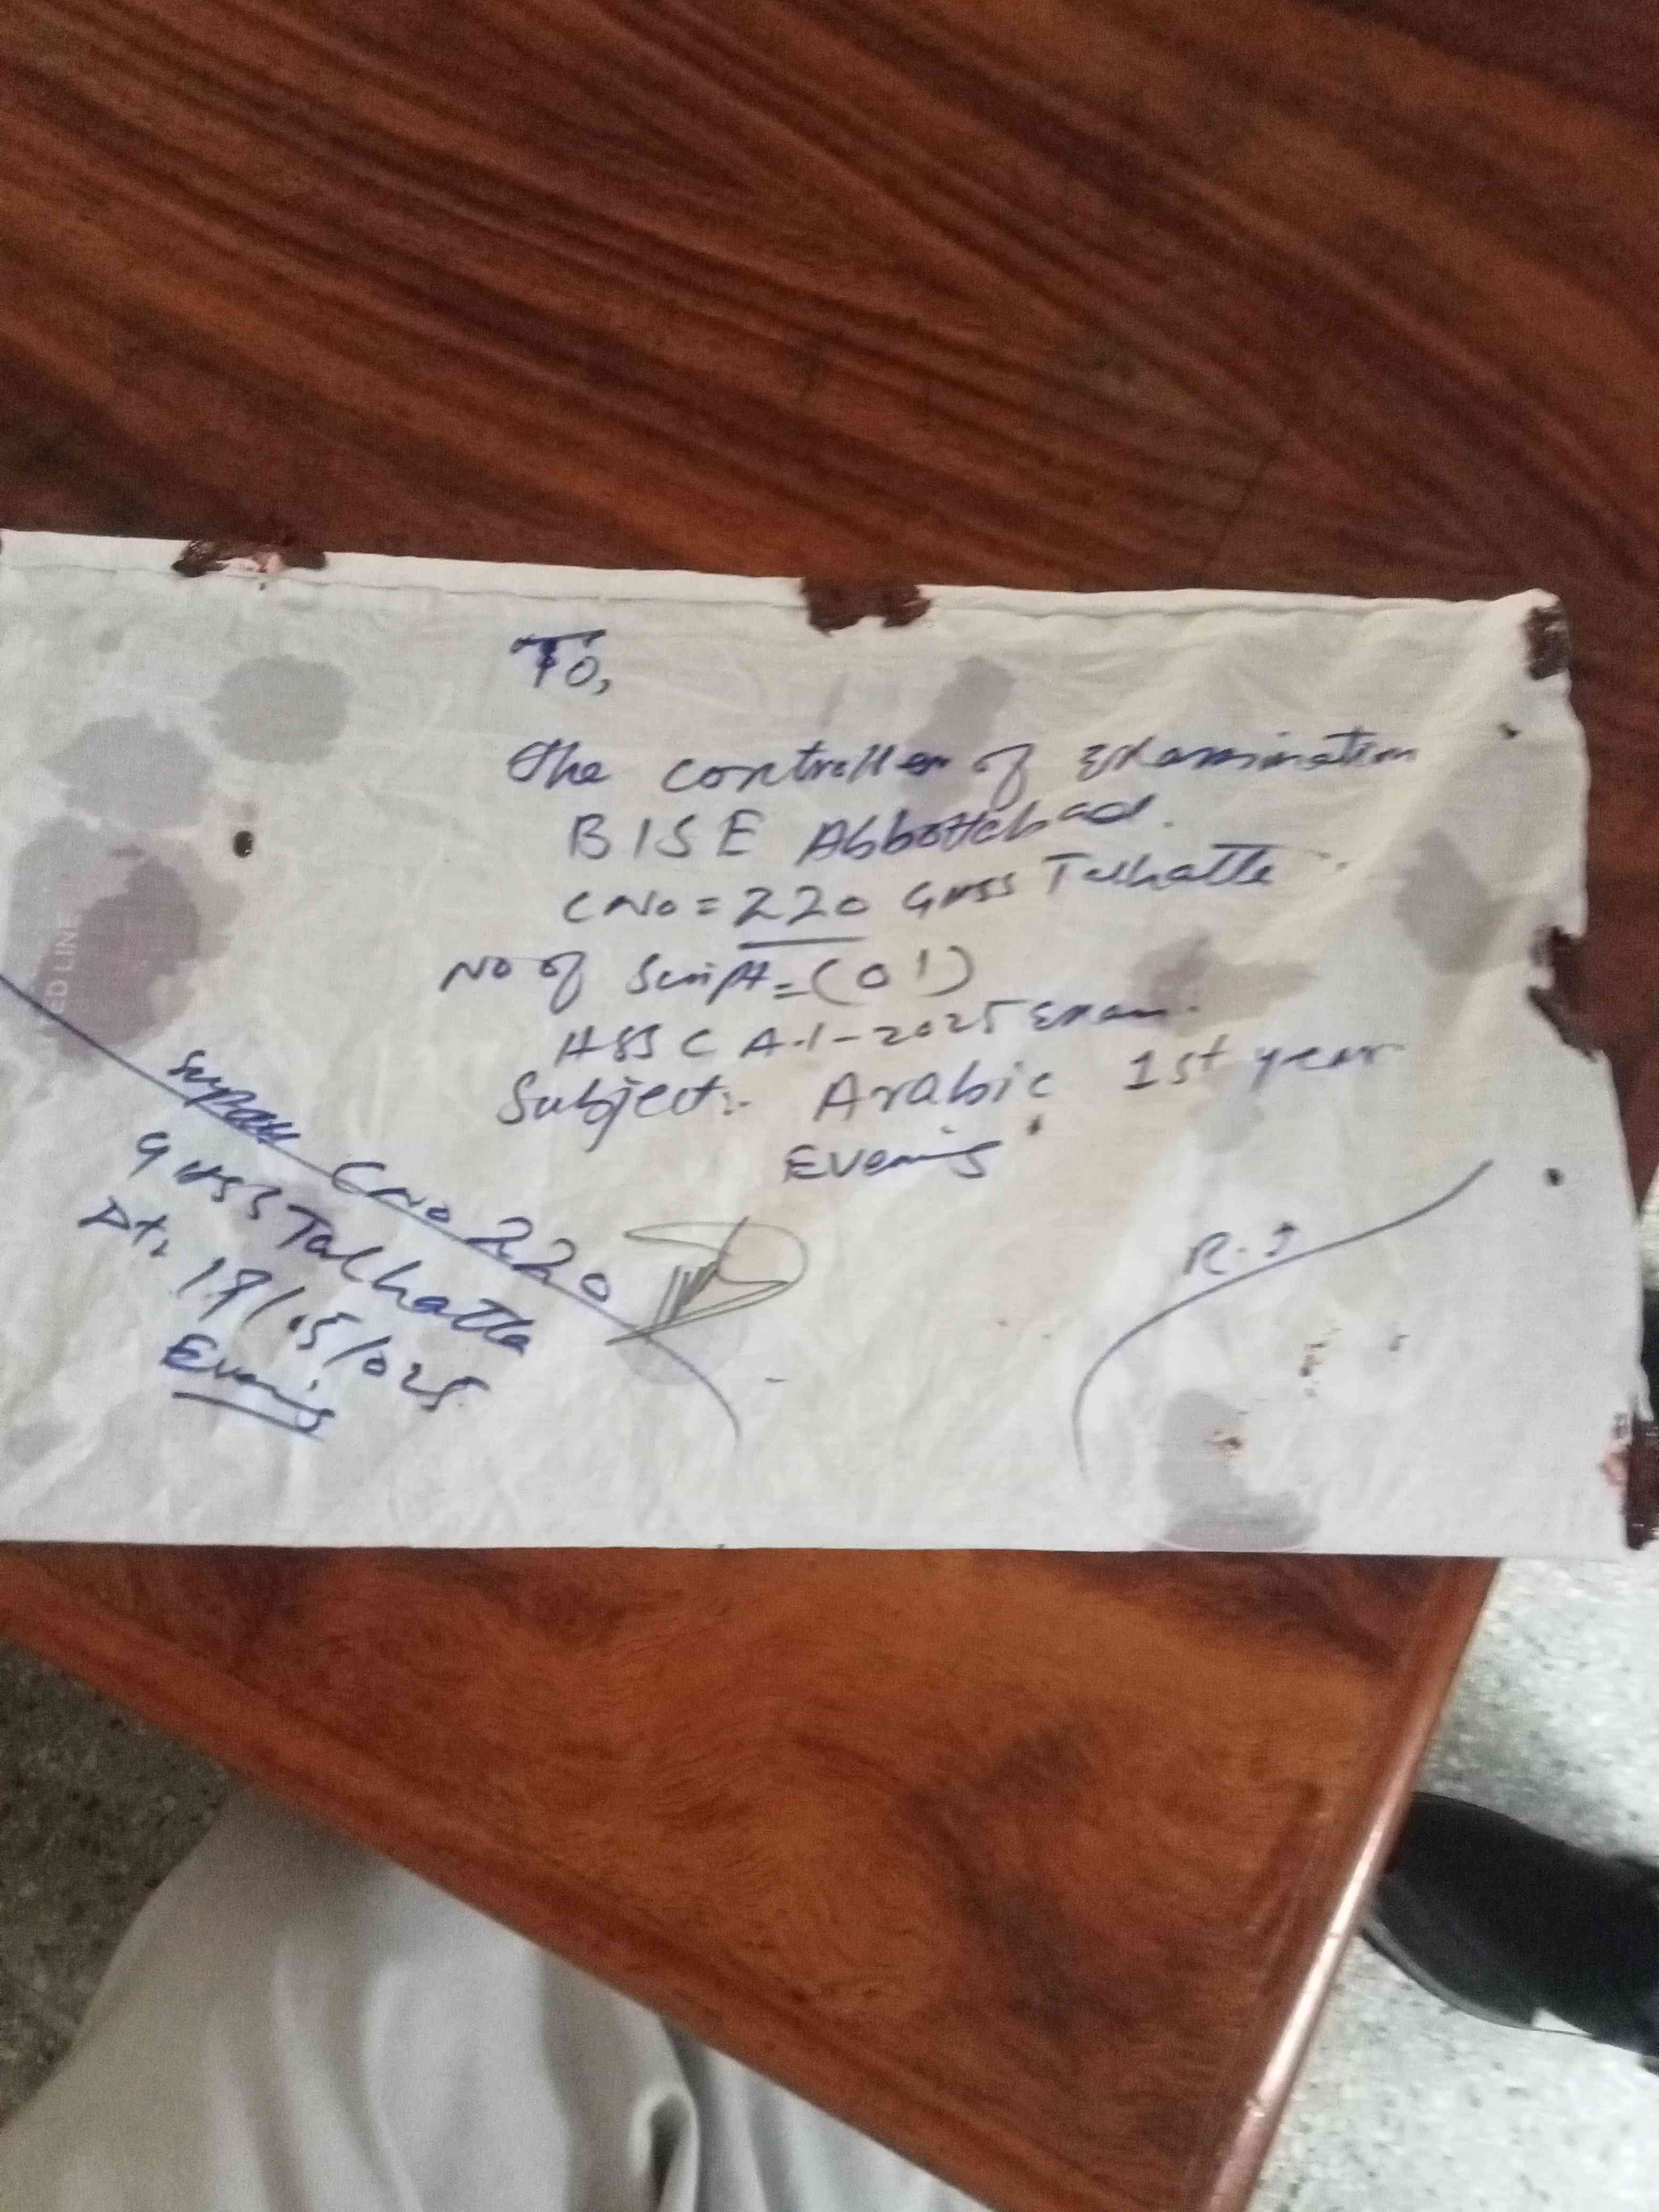 To,
The controller of Examination
BISE Abbottabad.
CNo = 220 GHSS Talhatta
No of Script = (01)
HSSC A-1-2025 Exam.
Subject:- Arabic 1st year
Evening
CNo 220
GHSS Talhatta
Dt. 19/5/025
Evening
R.
ED LINE